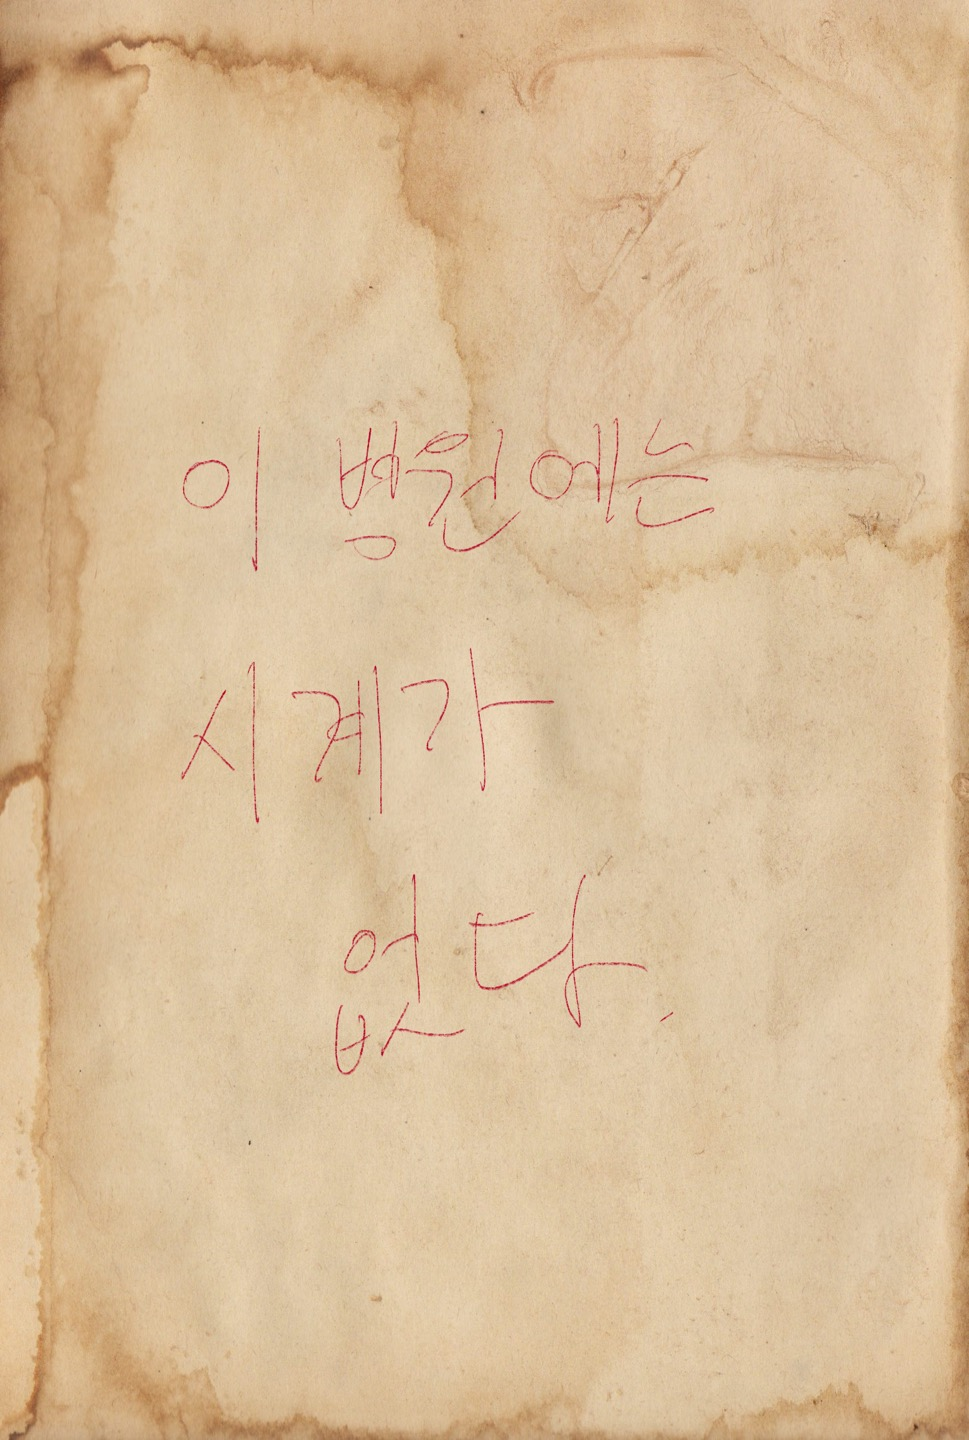 이 병원에는
시계가
없다.